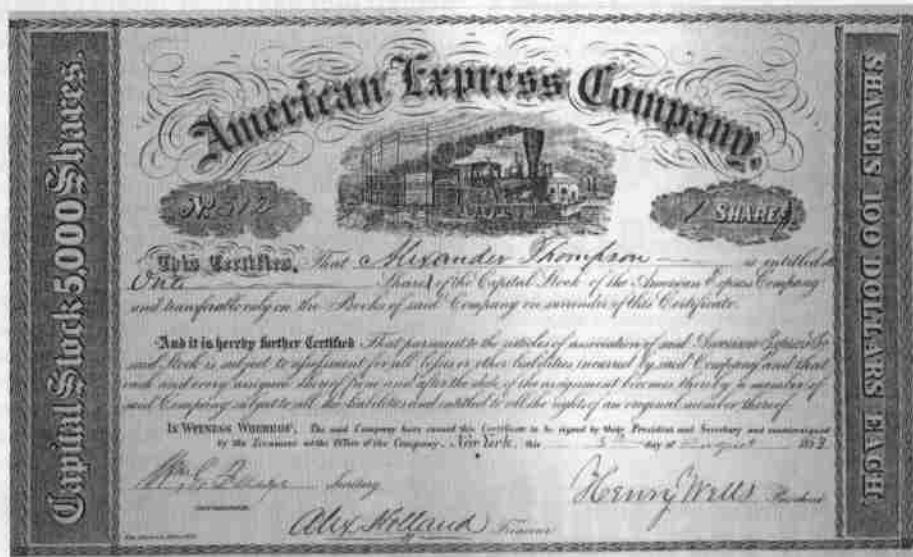 American Express Company.
No.
1 SHARE
Capital Stock 5,000 Shares.
SHARES 100 DOLLARS EACH.
This Certifies, That Alexander Thompson is entitled to
One Share of the Capital Stock of the American Express Company
and transferable only on the Books of said Company on surrender of this Certificate.
And it is hereby further Certified That pursuant to the articles of association of said American Express Co
said Stock is subject to assessment for all losses or other liabilities incurred by said Company and that
each and every assignee thereof from and after the date of the assignment becomes thereby a member of
said Company subject to all the liabilities and entitled to all the rights of an original member thereof.
IN WITNESS WHEREOF, The said Company have caused this Certificate to be signed by their President and Secretary and countersigned
by the Treasurer at the Office of the Company, New York, this 5th day of August
Secretary
Henry Wells President
Alex Holland Treasurer